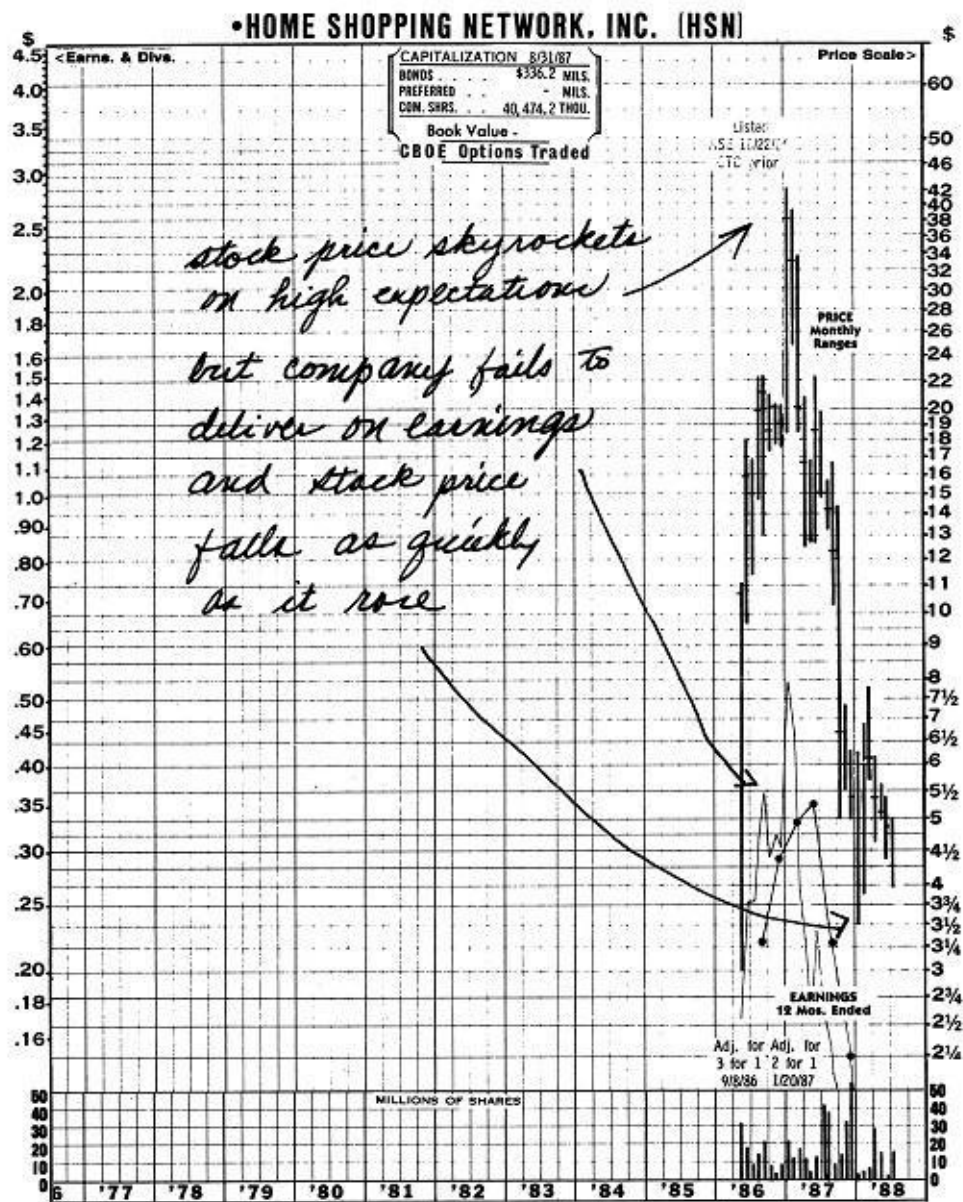 •HOME SHOPPING NETWORK, INC. (HSN)
$ $
<Earns. & Divs.
Price Scale>
CAPITALIZATION 8/31/87
BONDS . . . . $336.2 MILS.
PREFERRED . . - MILS.
COM. SHRS. . . 40,474.2 THOU.
Book Value -
CBOE Options Traded
4.5
4.0
3.5
3.0
2.5
2.0
1.8
1.6
1.5
1.4
1.3
1.2
1.1
1.0
.90
.80
.70
.60
.50
.45
.40
.35
.30
.25
.20
.18
.16
60
50
46
42
40
38
36
34
32
30
28
26
24
22
20
19
18
17
16
15
14
13
12
11
10
9
8
7½
7
6½
6
5½
5
4½
4
3¾
3½
3¼
3
2¾
2½
2¼
prior
stock price skyrockets
on high expectations
but company fails to
deliver on earnings
and stock price
falls as quickly
as it rose
PRICE
Monthly
Ranges
EARNINGS
12 Mos. Ended
Adj. for Adj. for
3 for 1 2 for 1
9/8/86 1/20/87
MILLIONS OF SHARES
50
40
30
20
10
0
50
40
30
20
10
0
6 '77 '78 '79 '80 '81 '82 '83 '84 '85 '86 '87 '88